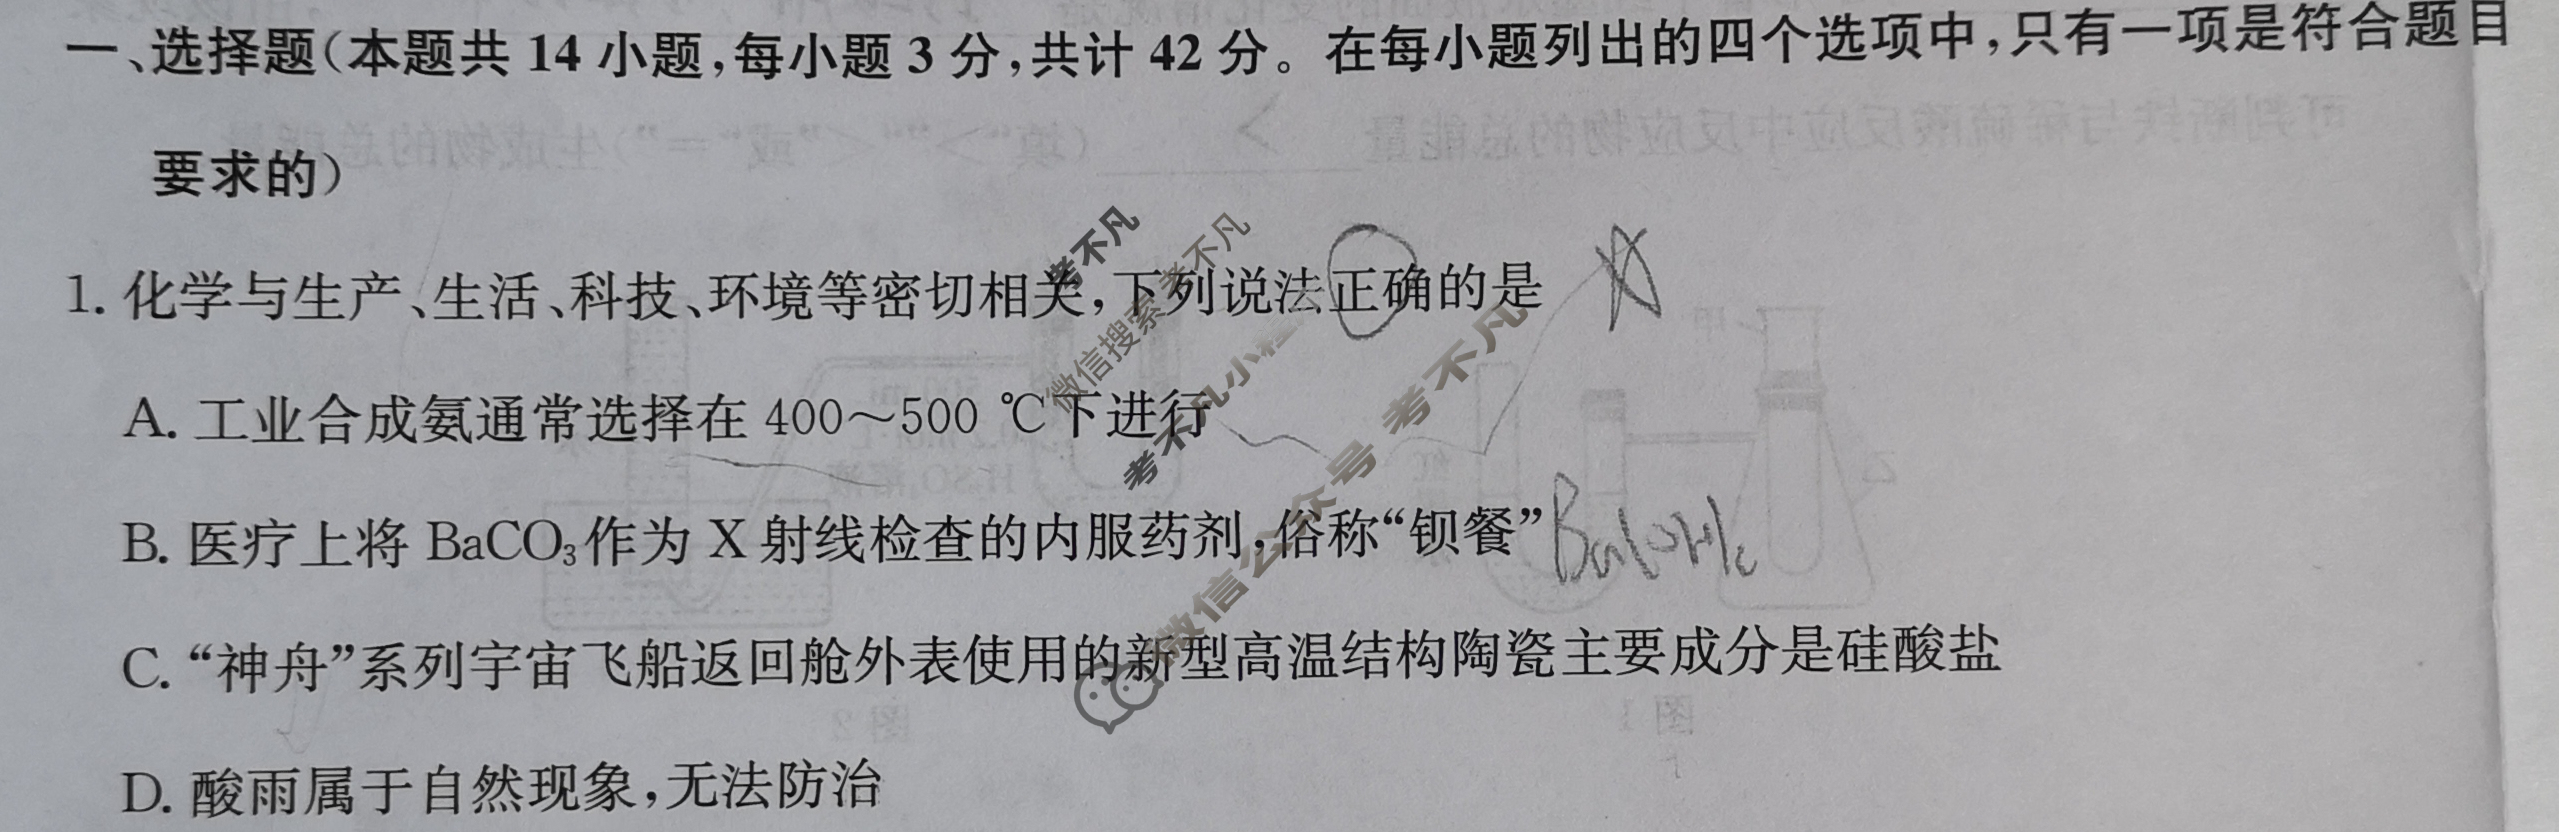 一、选择题(本题共 14 小题,每小题 3 分,共计 42 分。在每小题列出的四个选项中,只有一项是符合题目
要求的)
1. 化学与生产、生活、科技、环境等密切相关,下列说法正确的是
A. 工业合成氨通常选择在 400～500 ℃下进行
B. 医疗上将 BaCO₃作为 X 射线检查的内服药剂,俗称“钡餐”
C. “神舟”系列宇宙飞船返回舱外表使用的新型高温结构陶瓷主要成分是硅酸盐
D. 酸雨属于自然现象,无法防治
考不凡
微信搜索 考不凡
考不凡小程
微信公众号 考不凡